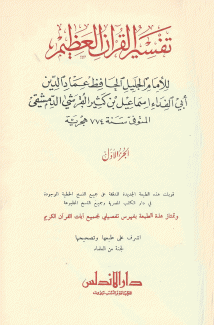 تفسير القرآن العظيم
للإمام الجليل الحافظ عماد الدين
أبي الفداء إسماعيل بن كثير القرشي الدمشقي
المتوفى سنة ٧٧٤ هجرية
الجزء الأول
قوبلت هذه الطبعة الجديدة المدققة على جميع النسخ الخطية الموجودة
في دار الكتب المصرية وجميع النسخ المطبوعة
وتمتاز هذه الطبعة بفهرس تفصيلي لجميع آيات القرآن الكريم
اشرف على طبعها وتصحيحها
لجنة من العلماء
دار الأندلس